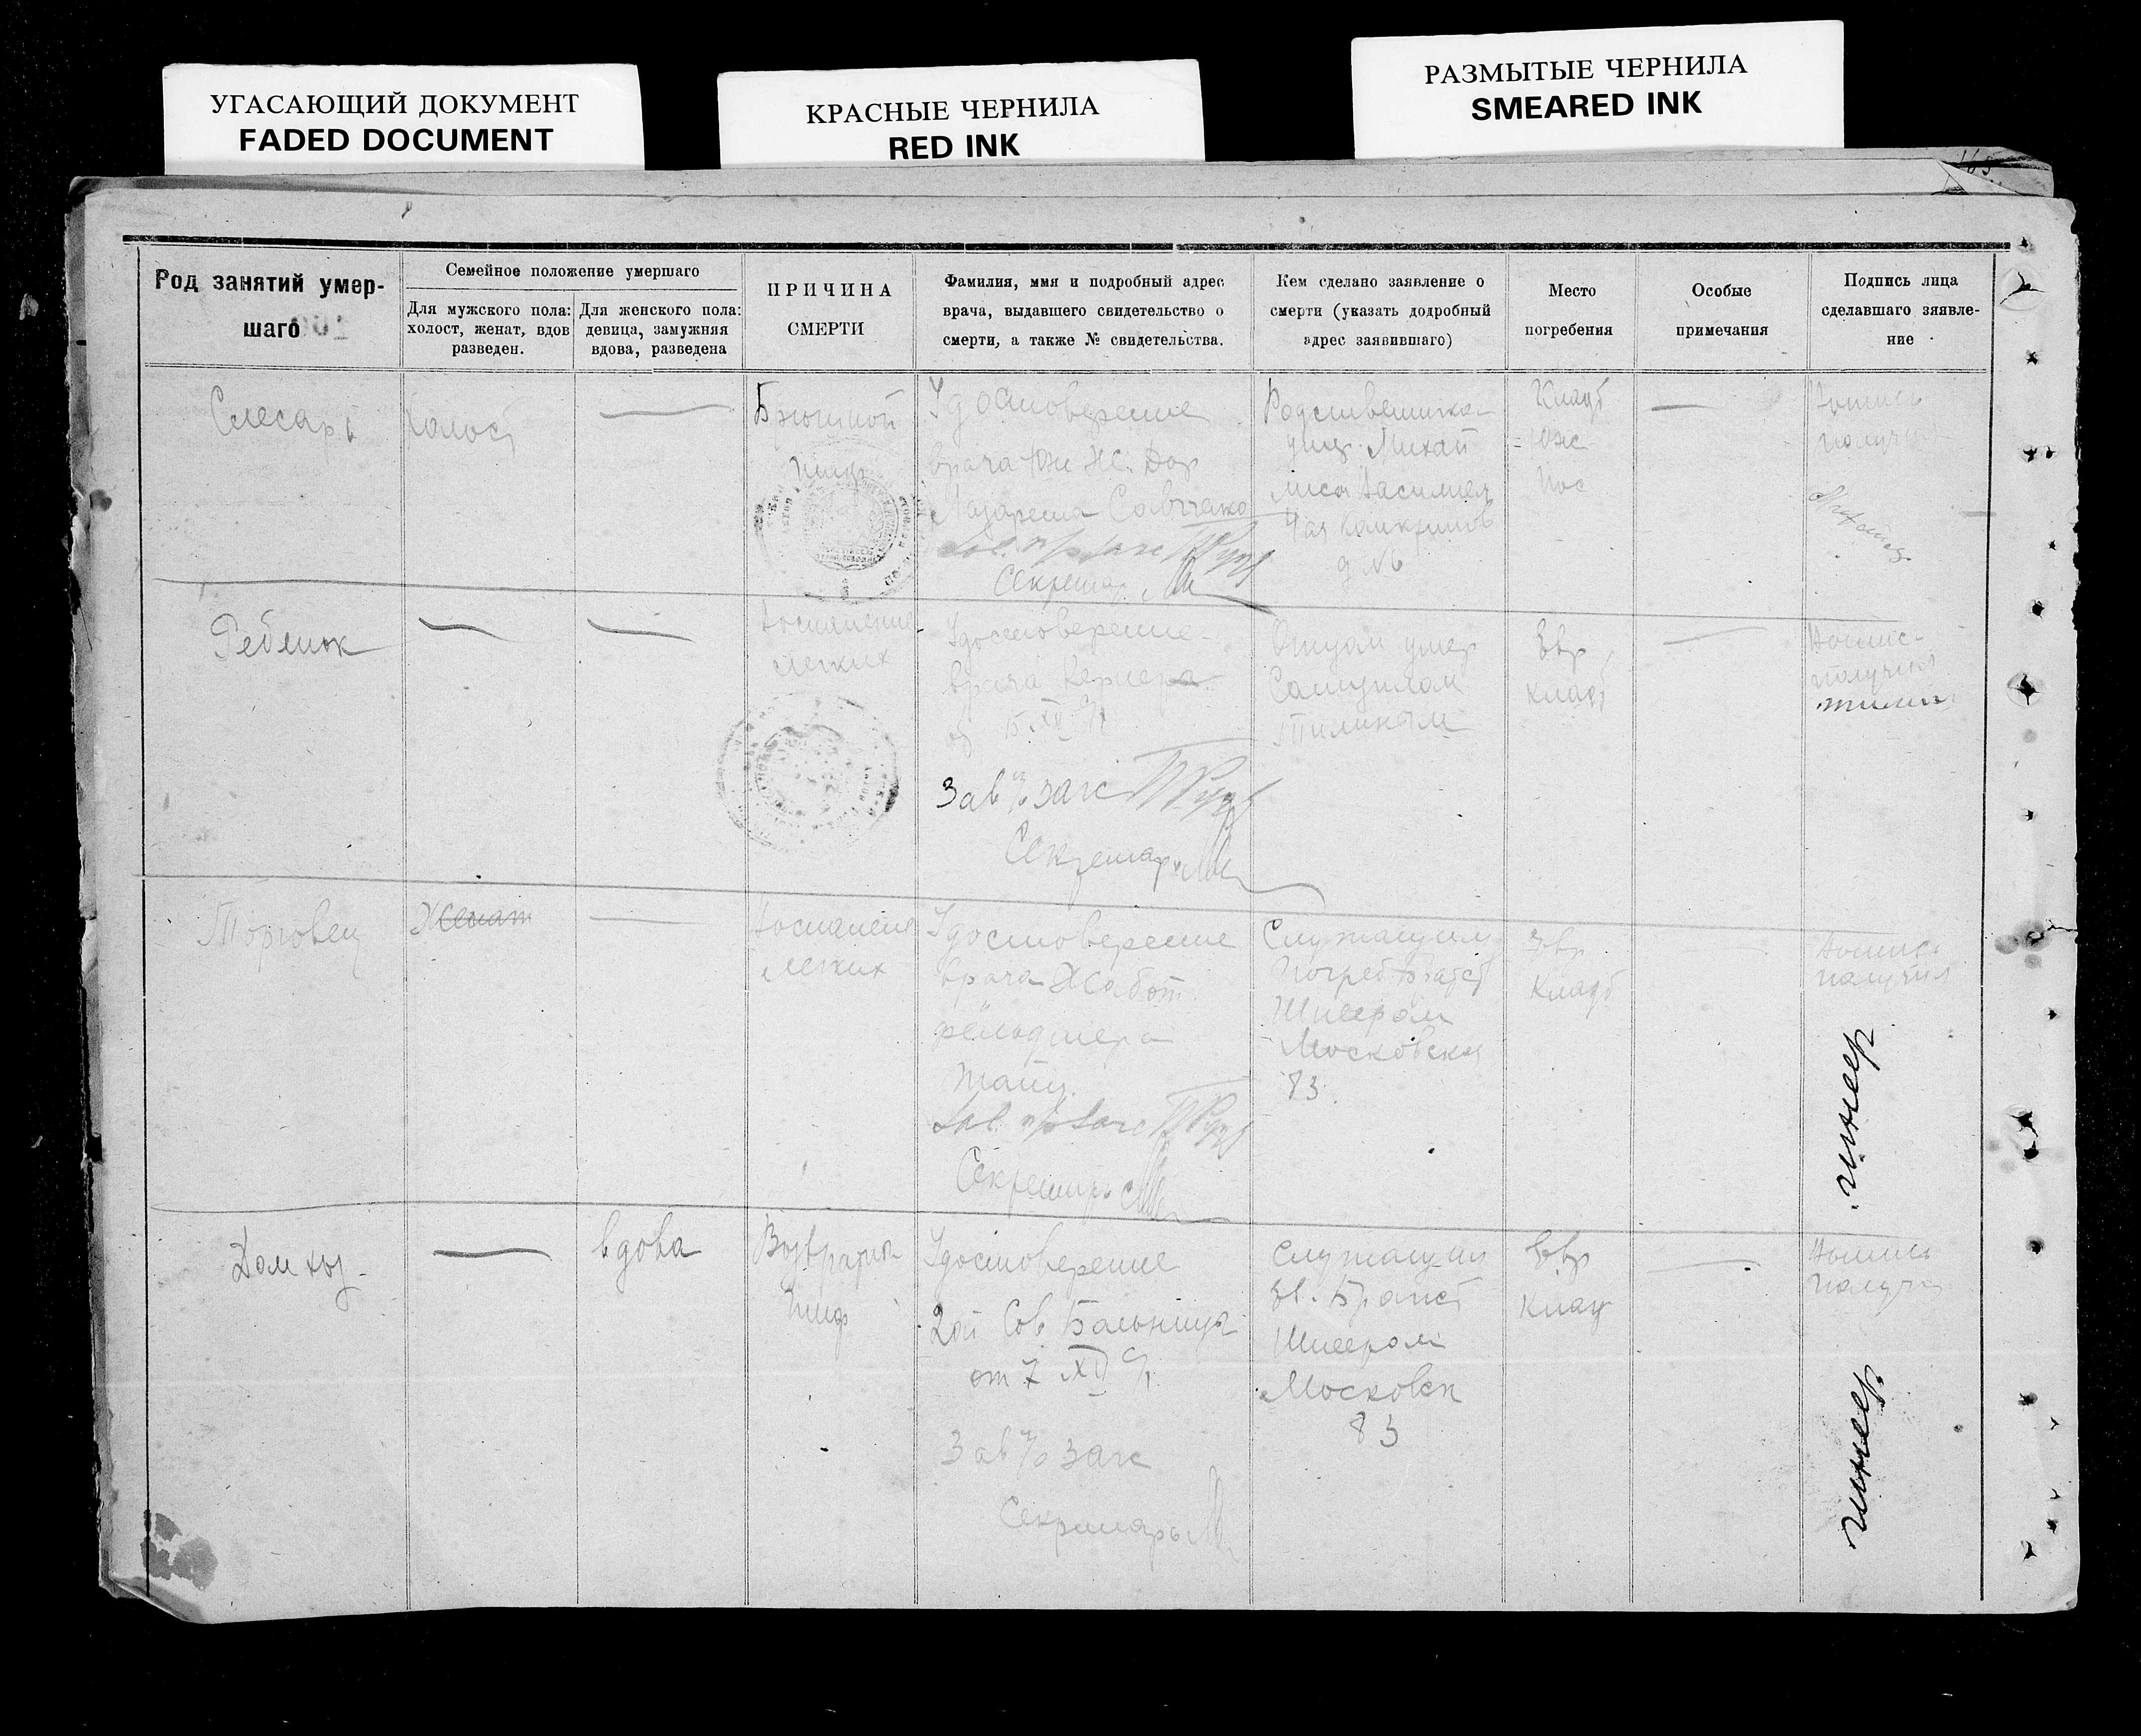 УГАСАЮЩИЙ ДОКУМЕНТ
FADED DOCUMENT
КРАСНЫЕ ЧЕРНИЛА
RED INK
РАЗМЫТЫЕ ЧЕРНИЛА
SMEARED INK
165.
Род занятий умер-
шаго
Семейное положение умершаго
Для мужского пола:
холост, женат, вдов
разведен.
Для женского пола:
девица, замужняя
вдова, разведена
ПРИЧИНА
СМЕРТИ
Фамилия, ммя и подробный адрес
врача, выдавшего свидетельство о
смерти, а также № свидетельства.
Кем сделано заявление о
смерти (указать додробный
адрес заявившаго)
Место
погребения
Особые
примечания
Подпись лица
сделавшаго зяявле-
ние
Слесарь
Холост
Брюшной
тиф
Удостоверение
врача Юж Ж. Дор
Назарета Савченко
Зав. п/о Загс
Секретар
Родственика
умер Михай
Васильев
д № 6
Кладб
Юж
Пос
Выпись
получил
Ребенок
Воспаление
легких
Удостоверение
врача
от 15 XII с/г
Зав п/о загс
Секретарь
Отцом умер
Самуилом
Тилиным
Евр
кладб
Выпис
получил
Тилин
Торговец
Женат
Воспаление
легких
Удостоверение
врача Жабот.
фельдшера
Зав. п/о Загс
Секретарь
Служащим
Погреб Братст
Шнеером
Московская
83.
Евр
Кладб
Выпись
получил
Шнеер
Дом хоз.
вдова
Возвратн
тиф
Удостоверение
2ой Сов Больницы
от 7 XII с/г.
Зав п/о загс
Секретарь
Служащим
Ев. Братст
Шнеером
Московск
83
Евр
Клад
Выпись
получил
Шнеер